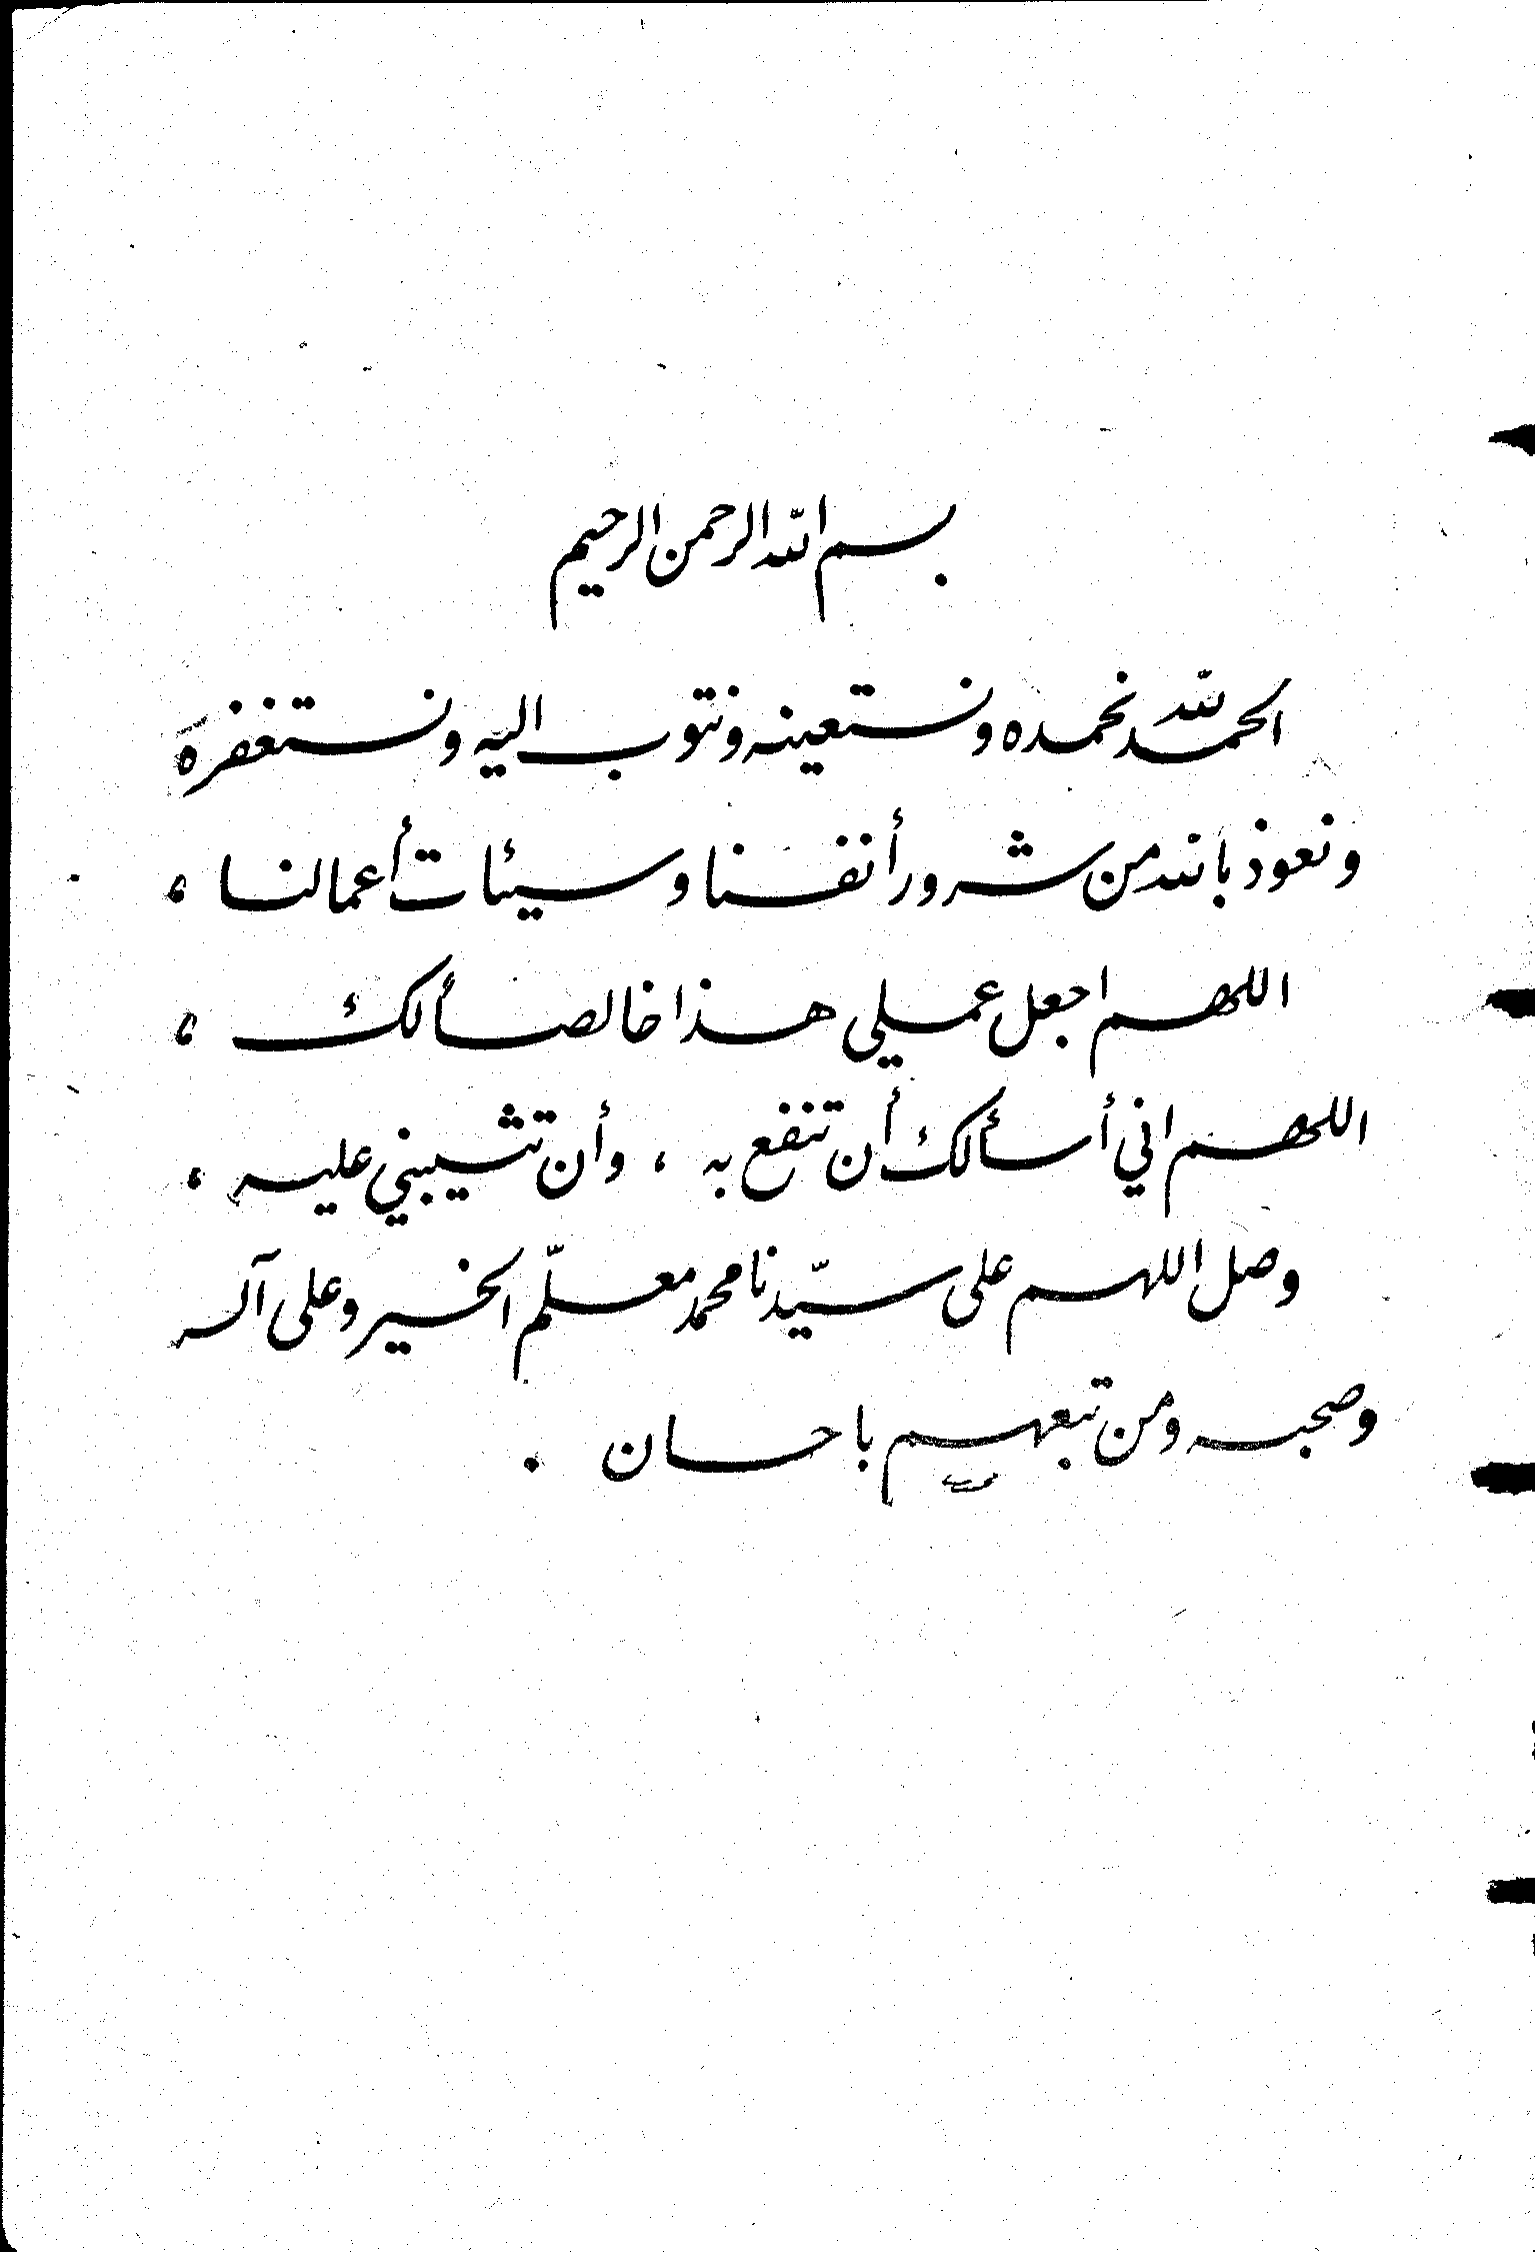 بسم الله الرحمن الرحيم
الحمد لله نحمده ونستعينه ونتوب اليه ونستغفره
ونعوذ بالله من شرور أنفسنا وسيئات أعمالنا ،
اللهم اجعل عملي هذا خالصاً لك ،
اللهم اني أسألك أن تنفع به ، وأن تثيبني عليه ،
وصل اللهم على سيّدنا محمد معلّم الخير وعلى آله
وصحبه ومن تبعهم باحسان .